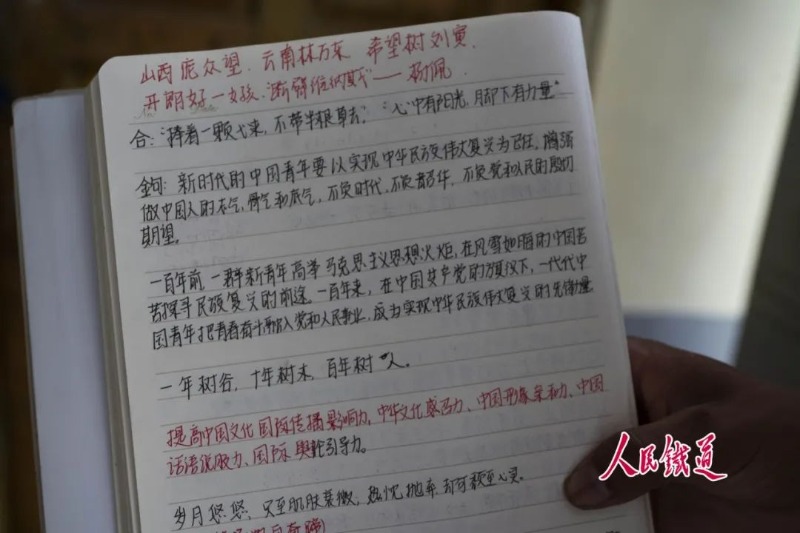 山西庞众望、云南林万东 希望树刘寅
开朗好一女孩.“断臂维纳斯”——杨佩
合:“捧着一颗心来,不带半根草去”.“心中有阳光,脚下有力量”
金句:新时代的中国青年要以实现中华民族伟大复兴为己任,增强
做中国人的志气,骨气和底气,不负时代,不负韶华,不负党和人民的殷切
期望。
一百年前,一群新青年高举马克思主义思想火炬,在风雪如晦的中国苦
苦探寻民族复兴的前途.一百年来,在中国共产党的旗仪下,一代代中
国青年把青春奋斗融入党和人民事业,成为实现中华民族伟大复兴的先锋力量
一年树谷,十年树木,百年树人.
提高中国文化国际传播影响力、中华文化感召力、中国形象亲和力、中国
话语说服力、国际舆论引导力。
岁月悠悠,只至肌肤
人民鐵道